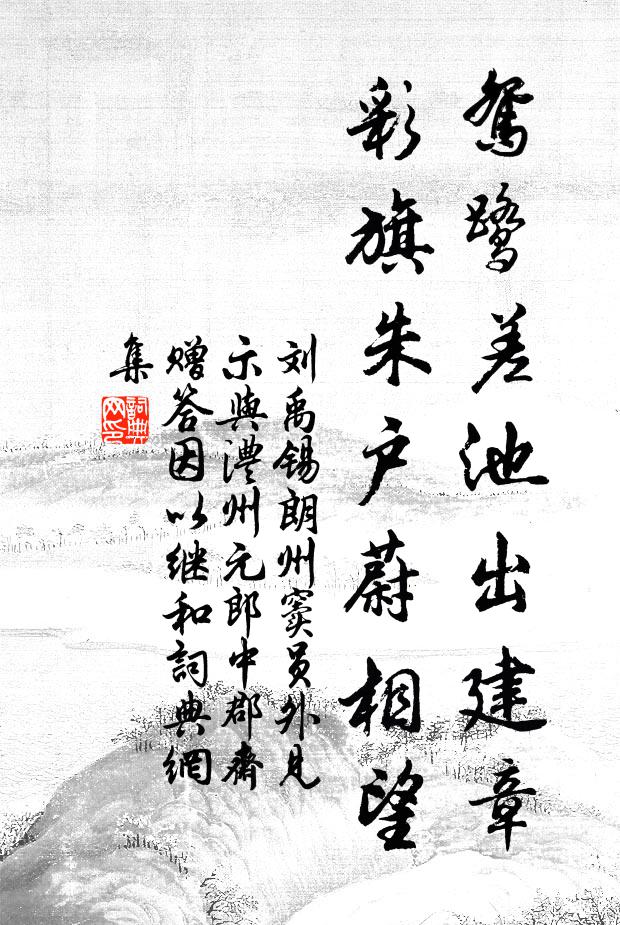 鸳鹭差池出建章
彩旗朱户蔚相望
刘禹锡朗州窦员外见
示与澧州元郎中郡斋
赠答因以继和詞典網
集
詞典
网印